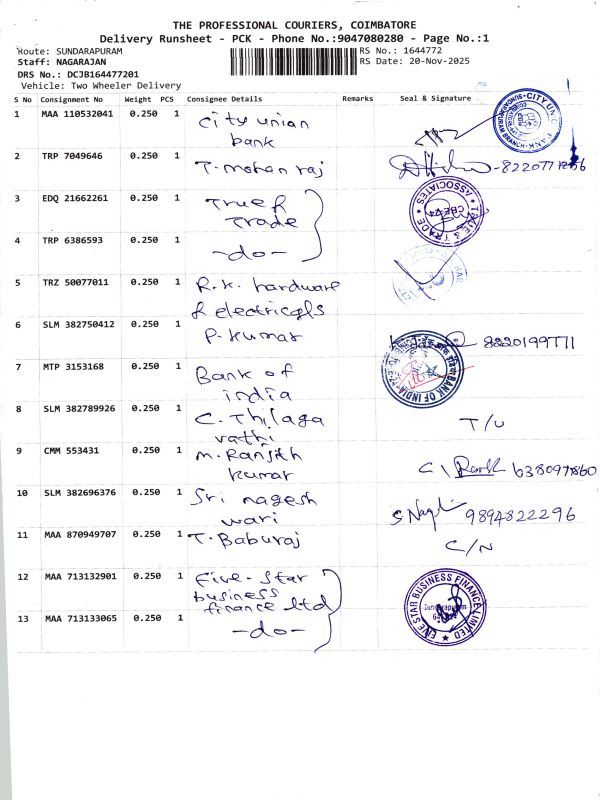 THE PROFESSIONAL COURIERS, COIMBATORE
Delivery Runsheet - PCK - Phone No.:9047080280 - Page No.:1
Route: SUNDARAPURAM
RS No.: 1644772
Staff: NAGARAJAN
RS Date: 20-Nov-2025
DRS No.: DCJB164477201
Vehicle: Two Wheeler Delivery
S No Consignment No Weight PCS Consignee Details Remarks Seal & Signature
1 MAA 110532041 0.250 1 City union
bank
2 TRP 7049646 0.250 1 T. mohan raj
3 EDQ 21662261 0.250 1 True &
Trade
ASSOCIATES TRUE & TRADE
4 TRP 6386593 0.250 1 -do-
5 TRZ 50077011 0.250 1 R.K. hardware
& electricals
6 SLM 382750412 0.250 1 P. Kumar 8220199711
7 MTP 3153168 0.250 1 Bank of
india
BANK OF INDIA
8 SLM 382789926 0.250 1 C. Thilaga
vathi
T/U
9 CMM 553431 0.250 1 M. Ranjith
kumar
6380977860
10 SLM 382696376 0.250 1 Sri nagesh
wari
9894822296
11 MAA 870949707 0.250 1 T. Baburaj C/N
12 MAA 713132901 0.250 1 Five-Star
business
finance ltd
FIVE STAR BUSINESS FINANCE LIMITED
Sundarapuram
13 MAA 713133065 0.250 1 -do-